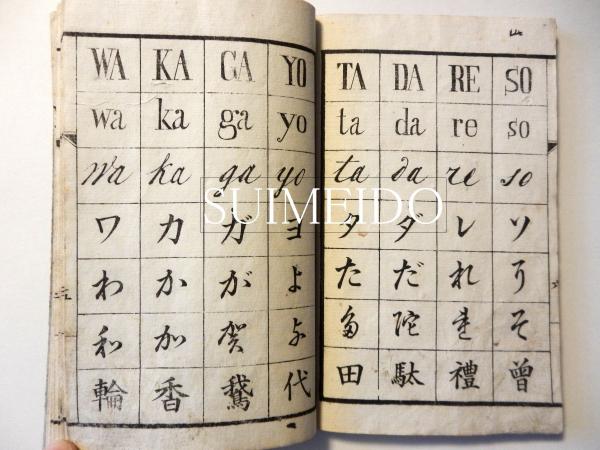 WA KA GA YO
wa ka ga yo
wa ka ga yo
ワ カ ガ ヨ
わ か が よ
和 加 賀 与
輪 香 鵞 代
山
TA DA RE SO
ta da re so
ta da re so
タ ダ レ ソ
た だ れ
多 陀 連 そ
田 駄 禮 曽
SUIMEIDO